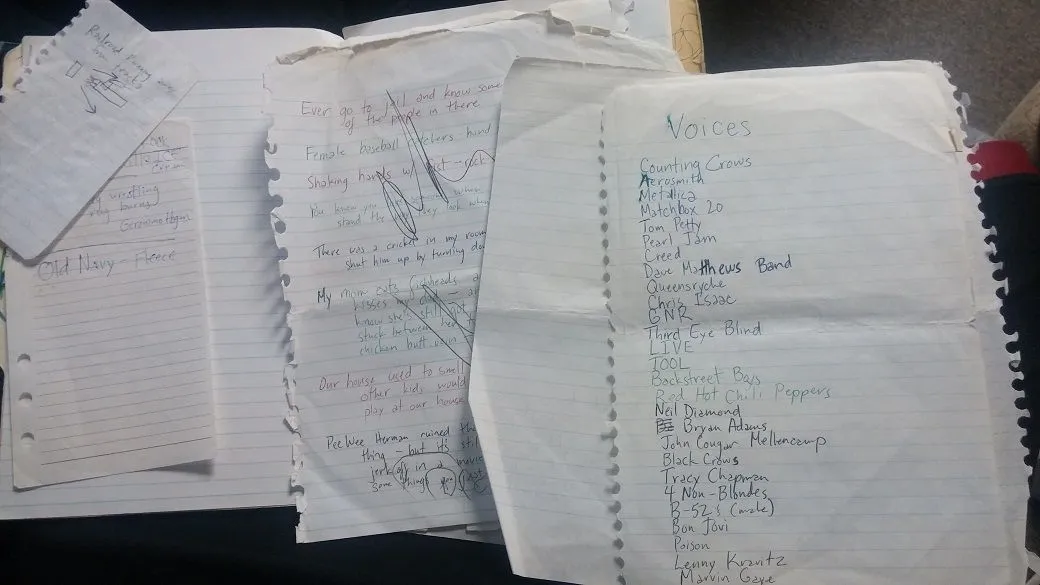 Railroad Funny
on tracks
wrestling
Geronimo
Old Navy - Fleece
Ever go to jail and know some
of the people in there
Female baseball
Shaking hands w/
You know you
stand the way look when
There was a cricket in my room
shut him up by turning do
My mom eats fishheads a
kisses my dad -
know she still
stuck between her
chicken butt
Our house used to smell
other kids would
play at our house
PeeWee Herman ruined the
thing - but it's still
jerk off in a movie
some things
Voices
Counting Crows
Aerosmith
Metallica
Matchbox 20
Tom Petty
Pearl Jam
Creed
Dave Matthews Band
Queensryche
Chris Isaac
GNR
Third Eye Blind
LIVE
TOOL
Backstreet Boys
Red Hot Chili Peppers
Neil Diamond
Bryan Adams
John Cougar Mellencamp
Black Crows
Tracy Chapman
4 Non-Blondes
B-52's (male)
Bon Jovi
Poison
Lenny Kravitz
Marvin Gaye